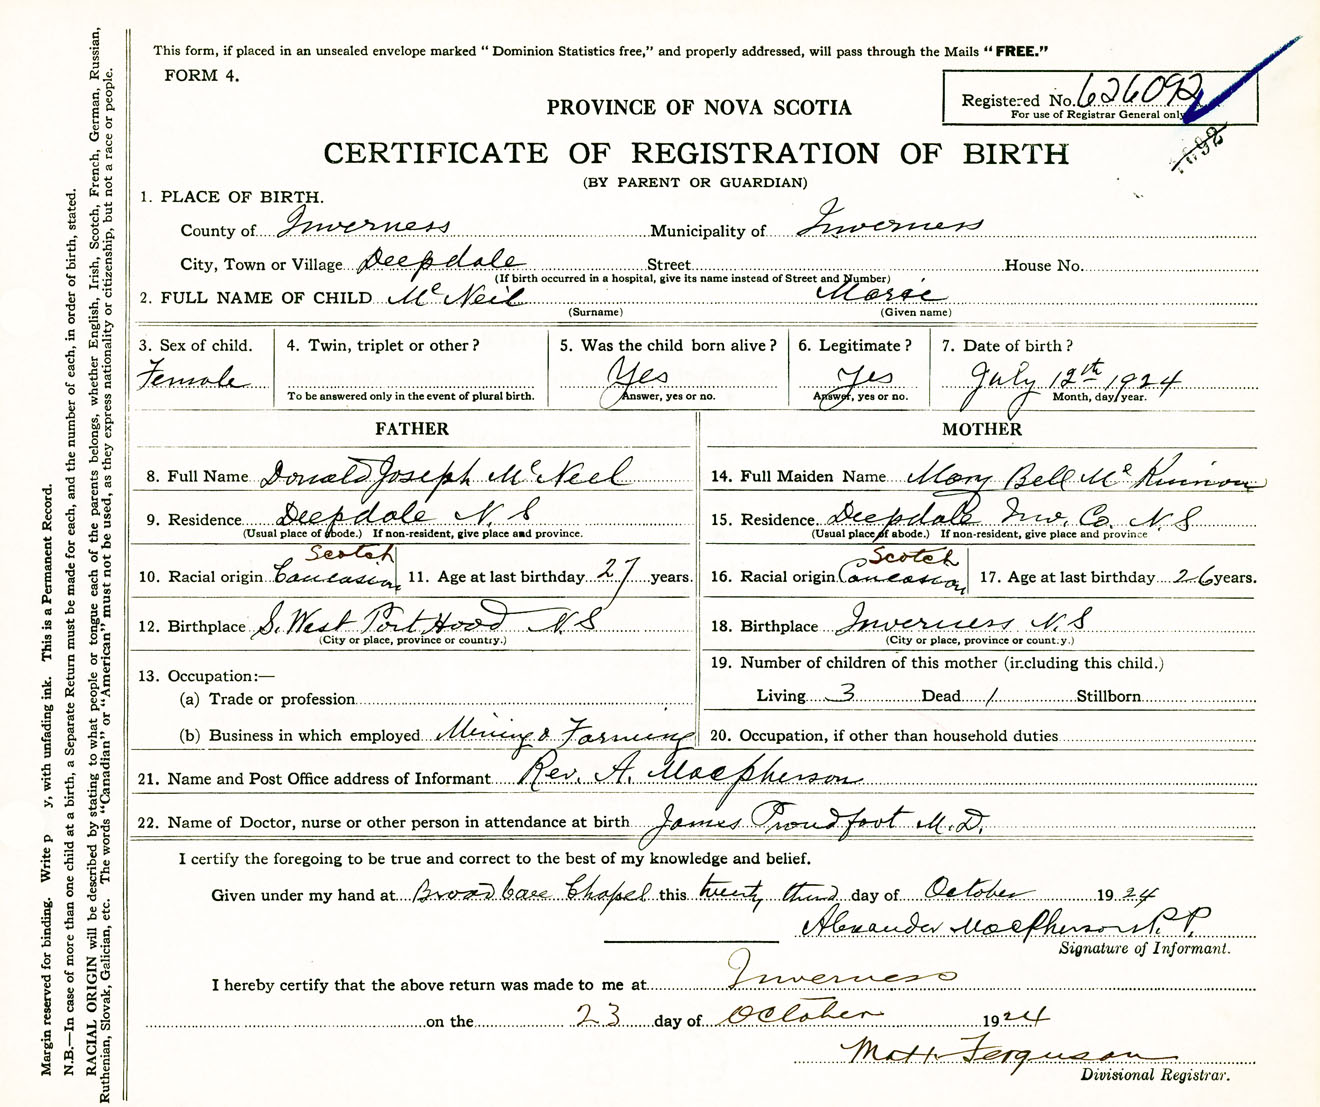 This form, if placed in an unsealed envelope marked "Dominion Statistics free," and properly addressed, will pass through the Mails "FREE."
FORM 4.
Registered No. 626092
For use of Registrar General only
PROVINCE OF NOVA SCOTIA
CERTIFICATE OF REGISTRATION OF BIRTH
(BY PARENT OR GUARDIAN)
1. PLACE OF BIRTH.
County of Inverness Municipality of Inverness
City, Town or Village Deepdale Street House No.
(If birth occurred in a hospital, give its name instead of Street and Number)
2. FULL NAME OF CHILD McNeil Marie
(Surname) (Given name)
3. Sex of child. 4. Twin, triplet or other? 5. Was the child born alive? 6. Legitimate? 7. Date of birth?
Female Yes Yes July 12th 1924
To be answered only in the event of plural birth. Answer, yes or no. Answer, yes or no. Month, day, year.
FATHER MOTHER
8. Full Name Donald Joseph McNeil 14. Full Maiden Name Mary Bell McKinnon
9. Residence Deepdale N.S 15. Residence. Deepdale Inv. Co. N.S
(Usual place of abode.) If non-resident, give place and province. (Usual place of abode.) If non-resident, give place and province
Scotch Scotch
10. Racial origin Caucasian 11. Age at last birthday 27 years. 16. Racial origin Caucasian 17. Age at last birthday 26 years.
12. Birthplace S. West Port Hood N.S 18. Birthplace Inverness N.S
(City or place, province or country.) (City or place, province or count.y.)
13. Occupation:— 19. Number of children of this mother (including this child.)
(a) Trade or profession Living 3 Dead 1 Stillborn
(b) Business in which employed Mining & Farming 20. Occupation, if other than household duties
21. Name and Post Office address of Informant Rev. A. Macpherson
22. Name of Doctor, nurse or other person in attendance at birth James Proudfoot M.D.
I certify the foregoing to be true and correct to the best of my knowledge and belief.
Given under my hand at Broad Cove Chapel this twenty third day of October 1924
Alexander MacPherson P.P.
Signature of Informant.
I hereby certify that the above return was made to me at Inverness
on the 23 day of October 1924
Matt. Ferguson
Divisional Registrar.
Margin reserved for binding. Write p y, with unfading ink. This is a Permanent Record.
N.B.—In case of more than one child at a birth, a Separate Return must be made for each, and the number of each, in order of birth, stated.
RACIAL ORIGIN will be described by stating to what people or tongue each of the parents belongs, whether English, Irish, Scotch, French, German, Russian,
Ruthenian, Slovak, Galician, etc. The words "Canadian" or "American" must not be used, as they express nationality or citizenship, but not a race or people.